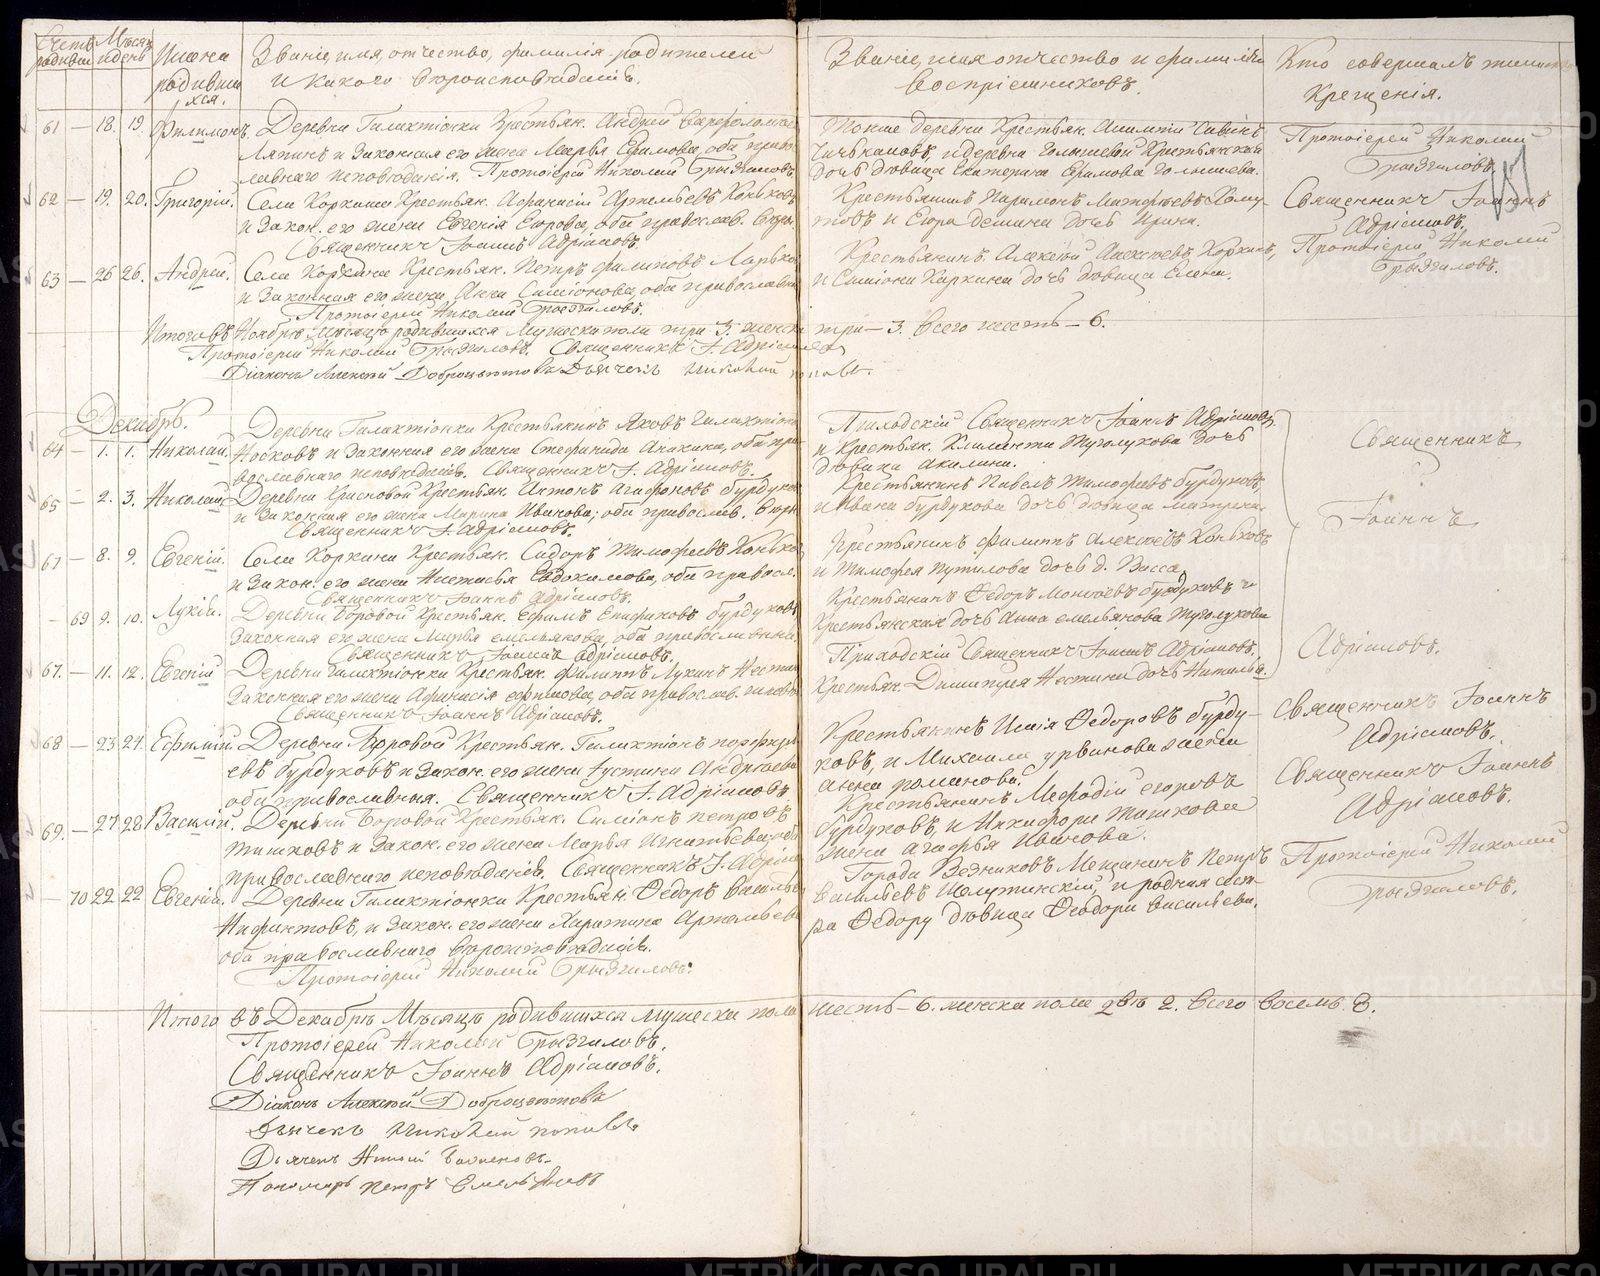 Счетъ родивши
Мѣсяц и день
Имена родивши хся.
Званіе, имя, отчество, фамилія родителей
и какого вѣроисповѣданія.
Званіе, имя отчество и фамилія
Воспріемниковъ.
Кто совершалъ таинство
Крещенія.
61 — 18. 19. Филимонъ. Деревни Галактіонки Крестьян. Андрей
Ляпинъ и Законная его жена Марѳа Ефимова, оба право
славнаго исповѣданія. Протоіерей Николай Грызгаловъ
Тоже деревни Крестьян.
и деревни Голышевой Крестьянская
дочь дѣвица Екатерина Ефимова Голышева.
Протоіерей Николай
Грызгаловъ.
62 — 19. 20. Григорій. Села Коркина Крестьян. Афанасій Артемьевъ Коньковъ
и Закон. его жена Евгенія Егорова, оба православ. вѣры.
Священникъ Іоаннъ Адріановъ.
Крестьянинъ Парамонъ Матфѣевъ Хому-
товъ и Егора Демина дочь Ирина.
Священникъ Іоаннъ
Адріановъ.
63 — 26 26. Андрей. Села Коркина Крестьян. Петръ Филиповъ
и Законная его жена Анна Симіонова, оба православн
Протоіерей Николай Грызгаловъ.
Крестьянинъ Алексѣй Алексѣевъ Коркинъ,
и Симіона Каркина дочь дѣвица Елена.
Протоіерей Николай
Грызгаловъ.
Итого въ Ноябрѣ мѣсяцѣ родившихся Мужеска пола три 3. женска три — 3. Всего шесть — 6.
Протоіерей Николай Грызгаловъ. Священникъ І. Адріановъ
Діаконъ Алексѣй Доброцвѣтовъ Дьячекъ Николай Поповъ.
Декабрь.
64 — 1. 1. Николай. Деревни Галактіонки Крестьянинъ Яковъ Галактіоно
Носковъ и Законная его жена Степанида Аникина, оба пра
вославнаго исповѣданія. Священникъ І. Адріановъ.
Приходскій Священникъ Іоаннъ Адріановъ,
и Крестьян. Климента Туголукова дочь
дѣвица Акилина.
Священникъ
65 — 2. 3. Николай. Деревни Красновой Крестьян. Антонъ Агафоновъ Бурдуков
и Законная его жена Марина Иванова; оба православ. вѣры
Священникъ І. Адріановъ.
Крестьянинъ Павелъ Тимофеевъ Бурдуковъ,
и Ивана Бурдукова дочь дѣвица Матрена.
Іоаннъ
67 — 8. 9. Евгеній. Села Коркина Крестьян. Сидоръ Тимофеевъ Конько
и Закон. его жена Настасья Евдокимова, оба правосл.
Священникъ Іоаннъ Адріановъ.
Крестьянинъ Филиппъ Алексѣевъ Коньковъ
и Тимофея Путилова дочь д. Васса.
69 9. 10. Лукія. Деревни Боровой Крестьян. Ефимъ Епифановъ Бурдуковъ
Законная его жена Марѳа Емельянова, оба православныя
Священникъ Іоаннъ Адріановъ.
Крестьянинъ Ѳедоръ Моисѣевъ Бурдуковъ и
Крестьянская дочь Анна Емельянова Туголукова
Адріановъ.
67. — 11. 12. Евгеній Деревни Галактіонки Крестьян. Филиппъ Лукинъ
Законная его жена Афанасія Ефимова, оба православ.
Священникъ Іоаннъ Адріановъ.
Приходскій Священникъ Іоаннъ Адріановъ,
Крестьян. Димитрея дочь Наталья.
68 — 23 24. Ефимій. Деревни Боровой Крестьян. Галактіонъ Порфирі
евъ Бурдуковъ и Закон. его жена Іустина Андреева
оба православныя. Священникъ І. Адріановъ
Крестьянинъ Исаія Ѳедоровъ Бурду-
ковъ, и Михаила Урванова жена
Анна Романова.
Священникъ Іоаннъ
Адріановъ.
69. — 27 28 Василій. Деревни Боровой Крестьян. Симіонъ Петровъ
Тишковъ и Закон. его жена Марѳа Игнатьева, оба
православнаго исповѣданія. Священникъ І. Адріа
Крестьянинъ Мефодій Егоровъ
Бурдуковъ, и Никифора Тишкова
жена Агафья Иванова.
Священникъ Іоаннъ
Адріановъ.
— 70 22 22 Евгеній. Деревни Галактіонки Крестьян. Ѳедоръ Василье
и Закон. его жена Харитина Артемьева
оба православнаго вѣроисповѣданія.
Протоіерей Николай Грызгаловъ.
Города Мещанинъ Петръ
Васильевъ и родная сест-
ра Ѳедору дѣвица Ѳеодора Васильева.
Протоіерей Николай
Грызгаловъ.
Итого въ Декабрѣ Мѣсяцѣ родившихся мужеска пола шесть — 6. женска пола двѣ 2. Всего восемь 8.
Протоіерей Николай Грызгаловъ.
Священникъ Іоаннъ Адріановъ.
Діаконъ Алексѣй Доброцвѣтовъ
Дьячекъ Николай Поповъ.
Пономарь Петръ Емельяновъ
METRIKI.CASO-URAL.RU